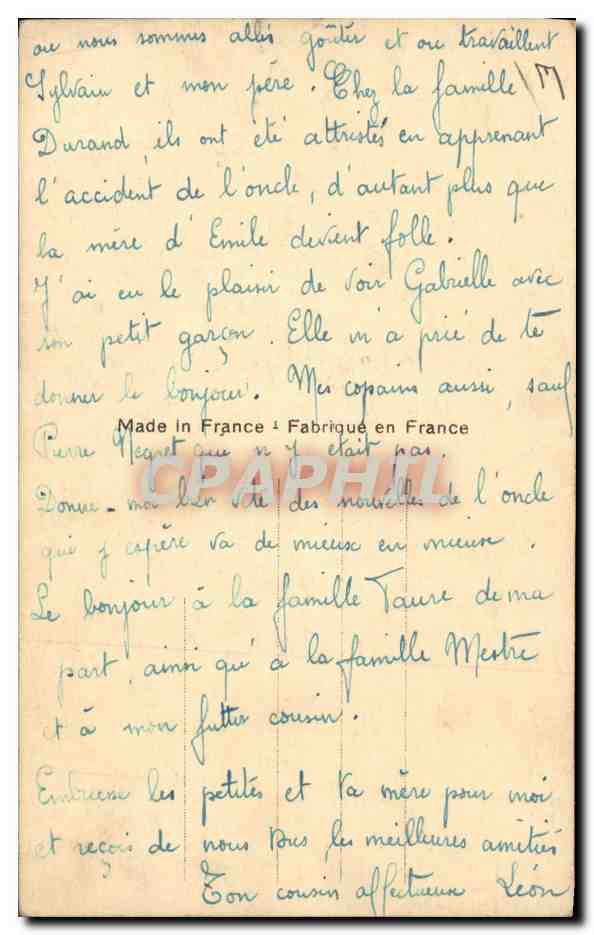 où nous sommes allés goûter et où travaillent
Sylvain et mon père. Chez la famille
Durand, ils ont été attristés en apprenant
l'accident de l'oncle, d'autant plus que
la mère d'Emile devient folle.
J'ai eu le plaisir de voir Gabrielle avec
son petit garçon. Elle m'a prié de te
donner le bonjour. Mes copains aussi, sauf
Made in France - Fabriqué en France
Pierre Negret qui n'y était pas.
CPAPHIL
Donne-moi bien vite des nouvelles de l'oncle
qui j'espère va de mieux en mieux.
Le bonjour à la famille Taure de ma
part, ainsi qu'à la famille Mestre
et à mon futur cousin.
Embrasse les petites et ta mère pour moi
et reçois de nous tous, les meilleures amitiés
Ton cousin affectueux Léon